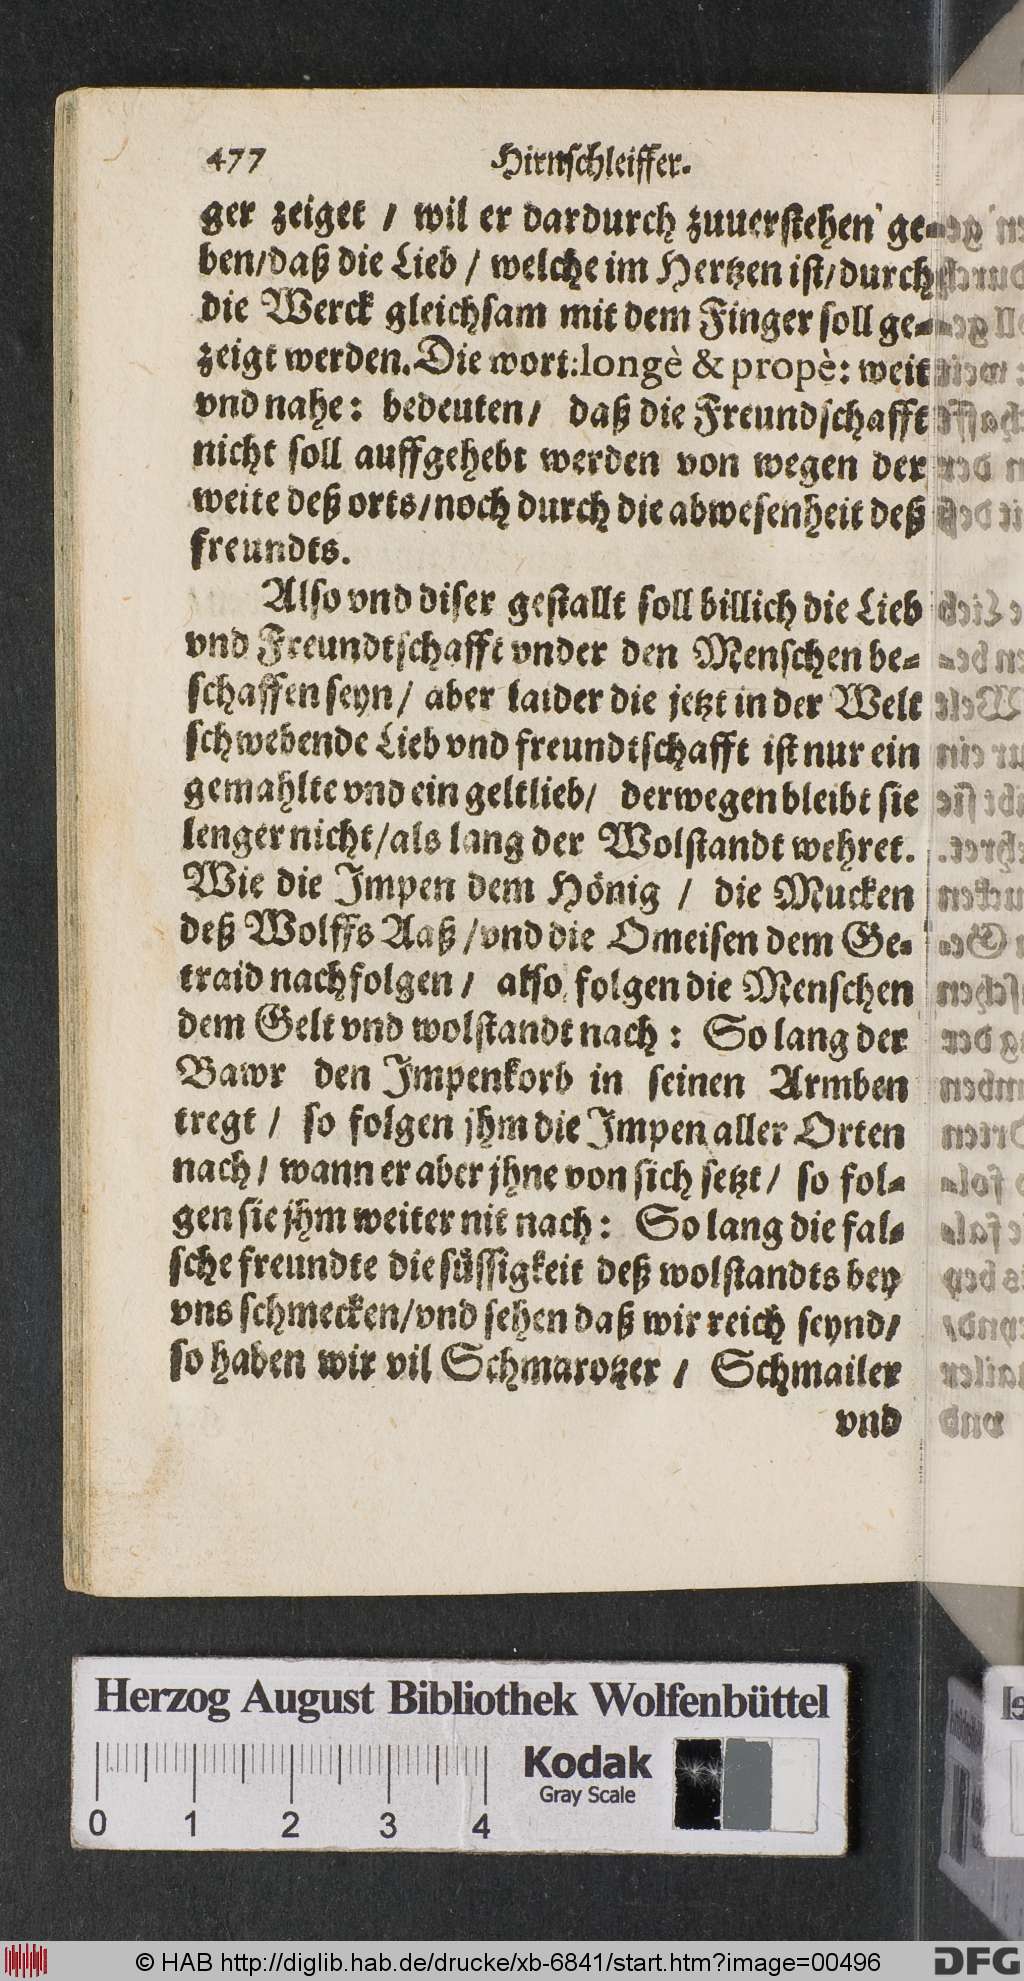 477 Hirnschleiffer.
ger zeiget / wil er dardurch zuuerstehen ge-
ben/daß die Lieb / welche im Hertzen ist/durch
die Werck gleichsam mit dem Finger soll ge-
zeigt werden. Die wort: longè & propè: weit
vnd nahe: bedeuten/ daß die Freundschafft
nicht soll auffgehebt werden von wegen der
weite deß orts/noch durch die abwesenheit deß
freundts.
Also vnd diser gestallt soll billich die Lieb
vnd Freundtschafft vnder den Menschen be-
schaffen seyn/ aber laider die jetzt in der Welt
schwebende Lieb vnd freundtschafft ist nur ein
gemahlte vnd ein geltlieb/ derwegen bleibt sie
lenger nicht/als lang der Wolstandt wehret.
Wie die Impen dem Hönig / die Mucken
deß Wolffs Aaß/vnd die Omeisen dem Ge-
traid nachfolgen/ also folgen die Menschen
dem Gelt vnd wolstandt nach: So lang der
Bawr den Impenkorb in seinen Armben
tregt / so folgen jhm die Impen aller Orten
nach/ wann er aber jhne von sich setzt/ so fol-
gen sie jhm weiter nit nach: So lang die fal-
sche freundte die süssigkeit deß wolstandts bey
vns schmecken/vnd sehen daß wir reich seynd/
so haben wir vil Schmarotzer / Schmailer
vnd
Herzog August Bibliothek Wolfenbüttel
Kodak
Gray Scale
0 1 2 3 4
© HAB http://diglib.hab.de/drucke/xb-6841/start.htm?image=00496
DFG